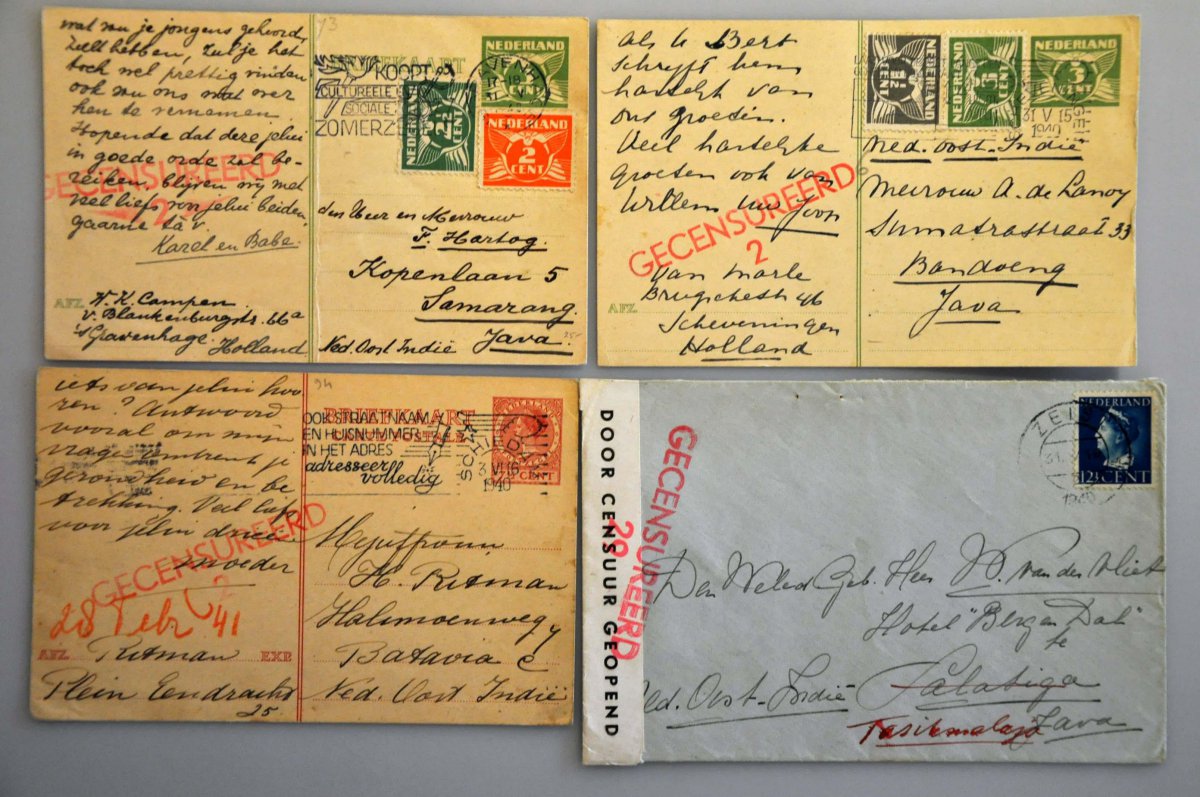 wat van je jongens gehoord
zult hebben, zul je het
toch wel prettig vinden
ook van ons wat over
hen te vernemen.
Hopende dat deze jelui
in goede orde zal be-
reiken, blijven wij met
veel liefs van jelui beiden
gaarne
Karel en Babe.
GECENSUREERD
2
AFZ.
W. K. Campen
v. Blankenburgstr. 66a
's Gravenhage. Holland
KOOPT
CULTUREELE
SOCIALE
ZOMERZE
NEDERLAND
CENT
NEDERLAND
2½
CENT
NEDERLAND
2
CENT
den Heer en Mevrouw
F. Hartog.
Kopenlaan 5
Samarang.
Java.
Ned. Oost Indië
Als U Bert
schrijft hem
hartelijk van
ons groeten.
Veel hartelijke
groeten ook van
Willem uw Joop
GECENSUREERD
2
van Marle
AFZ.
Brugschestr 46
Scheveningen
Holland
NEDERLAND
NEDERLAND
CENT
NEDERLAND
3
CENT
31 V 15
1940
Ned. Oost-Indië
Mevrouw A. de Lanoy
Sumatrastraat 33
Bandoeng
Java
iets van jelui hoo
ren? Antwoord
vooral om mijn
vrage omtrent je
gezondheid en be
trekking. Veel liefs
voor jelui drie
moeder
GECENSUREERD
2
28 Febr 41
AFZ.
Ritman
EXP.
Plein Eendracht
25
94
BRIEFKAART
OOK STRAATNAAM
EN HUISNUMMER
IN HET ADRES
adresseer
volledig
SCHIEDAM
3 VI 16
1940
CENT
Mejuffrouw
H. Ritman
Halimoenweg 4
Batavia C
Ned. Oost Indië
DOOR CENSUUR GEOPEND
GECENSUREERD
29
ZEIST
31
1940
NEDERLAND
12½ CENT
Den Weled. Geb. Heer W. van der Vliet
Hotel "Berg en Dal"
te
Ned. Oost-Indië
Salatiga
Java
Tasikmalaja